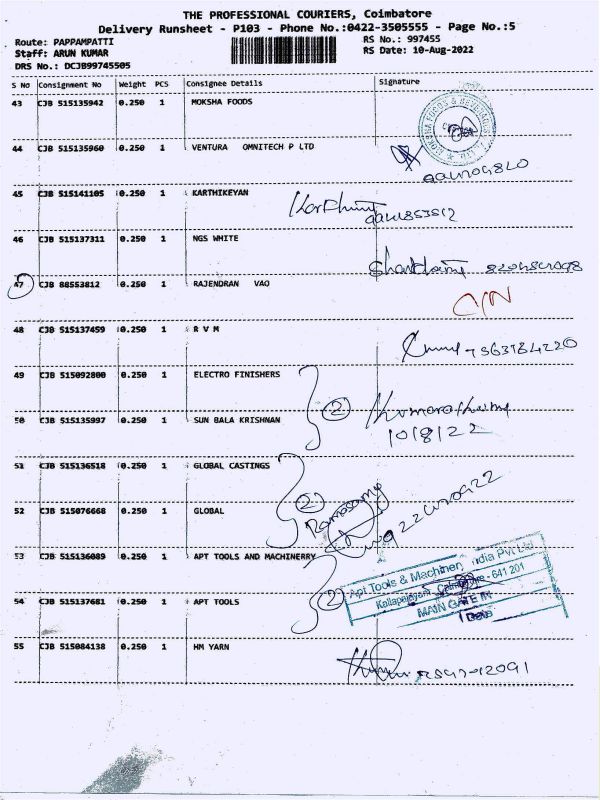 THE PROFESSIONAL COURIERS, Coimbatore
Delivery Runsheet - P103 - Phone No.:0422-3505555 - Page No.:5
Route: PAPPAMPATTI RS No.: 997455
Staff: ARUN KUMAR RS Date: 10-Aug-2022
DRS No.: DCJB99745505
S No Consignment No Weight PCS Consignee Details Signature
43 CJB 515135942 0.250 1 MOKSHA FOODS
44 CJB 515135960 0.250 1 VENTURA OMNITECH P LTD
45 CJB 515141105 0.250 1 KARTHIKEYAN
46 CJB 515137311 0.250 1 NGS WHITE
47 CJB 88553812 0.250 1 RAJENDRAN VAO
48 CJB 515137459 0.250 1 R V M
49 CJB 515092800 0.250 1 ELECTRO FINISHERS
2
50 CJB 515135997 0.250 1 SUN BALA KRISHNAN
10/8/22
51 CJB 515136518 0.250 1 GLOBAL CASTINGS
2 Ramasamy
52 CJB 515076668 0.250 1 GLOBAL
53 CJB 515136089 0.250 1 APT TOOLS AND MACHINERRY
2 Apt Tools & Machinery India Pvt Ltd
Coimbatore - 641 201
MAIN GATE IN
Date
54 CJB 515137681 0.250 1 APT TOOLS
55 CJB 515084138 0.250 1 HM YARN